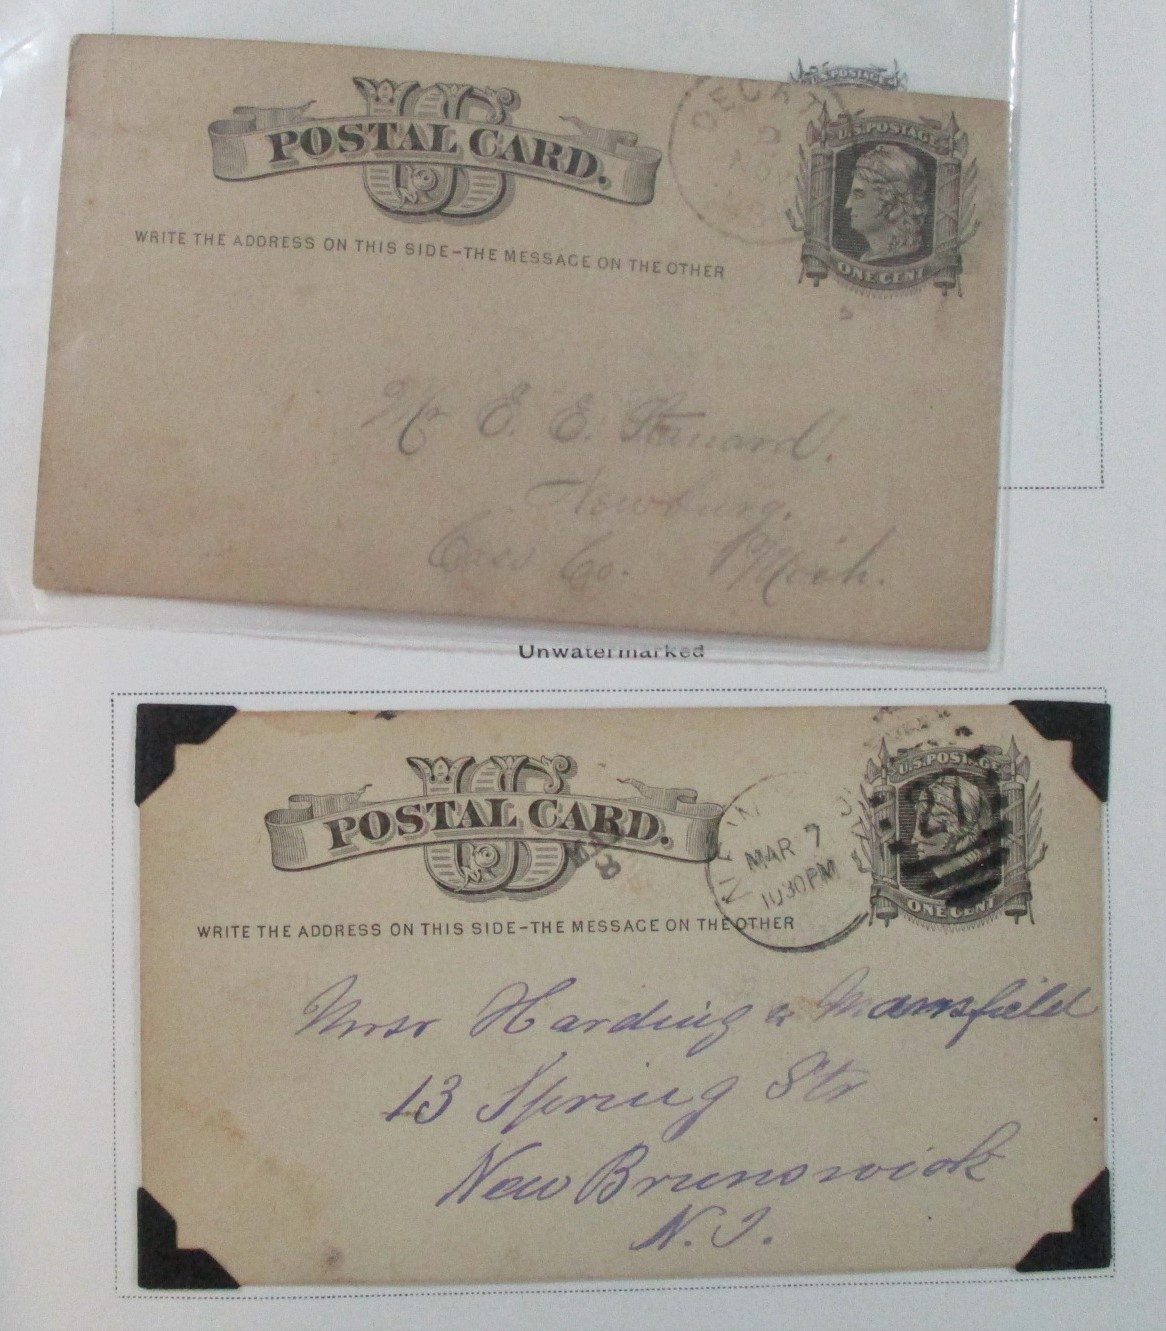 U.S. POSTAGE
US
POSTAL CARD.
DECAT
NOV
U.S. POSTAGE
ONE CENT
WRITE THE ADDRESS ON THIS SIDE–THE MESSAGE ON THE OTHER
Mr E. E. Stanard.
Newburg.
Cass Co. Mich.
Unwatermarked
US
POSTAL CARD.
MAR
8
NEW
MAR 7
10 30 PM
U.S. POSTAGE
21
ONE CENT
WRITE THE ADDRESS ON THIS SIDE–THE MESSAGE ON THE OTHER
Mrsr Harding & Mansfield
13 Spring Str
New Brunswick
N. J.